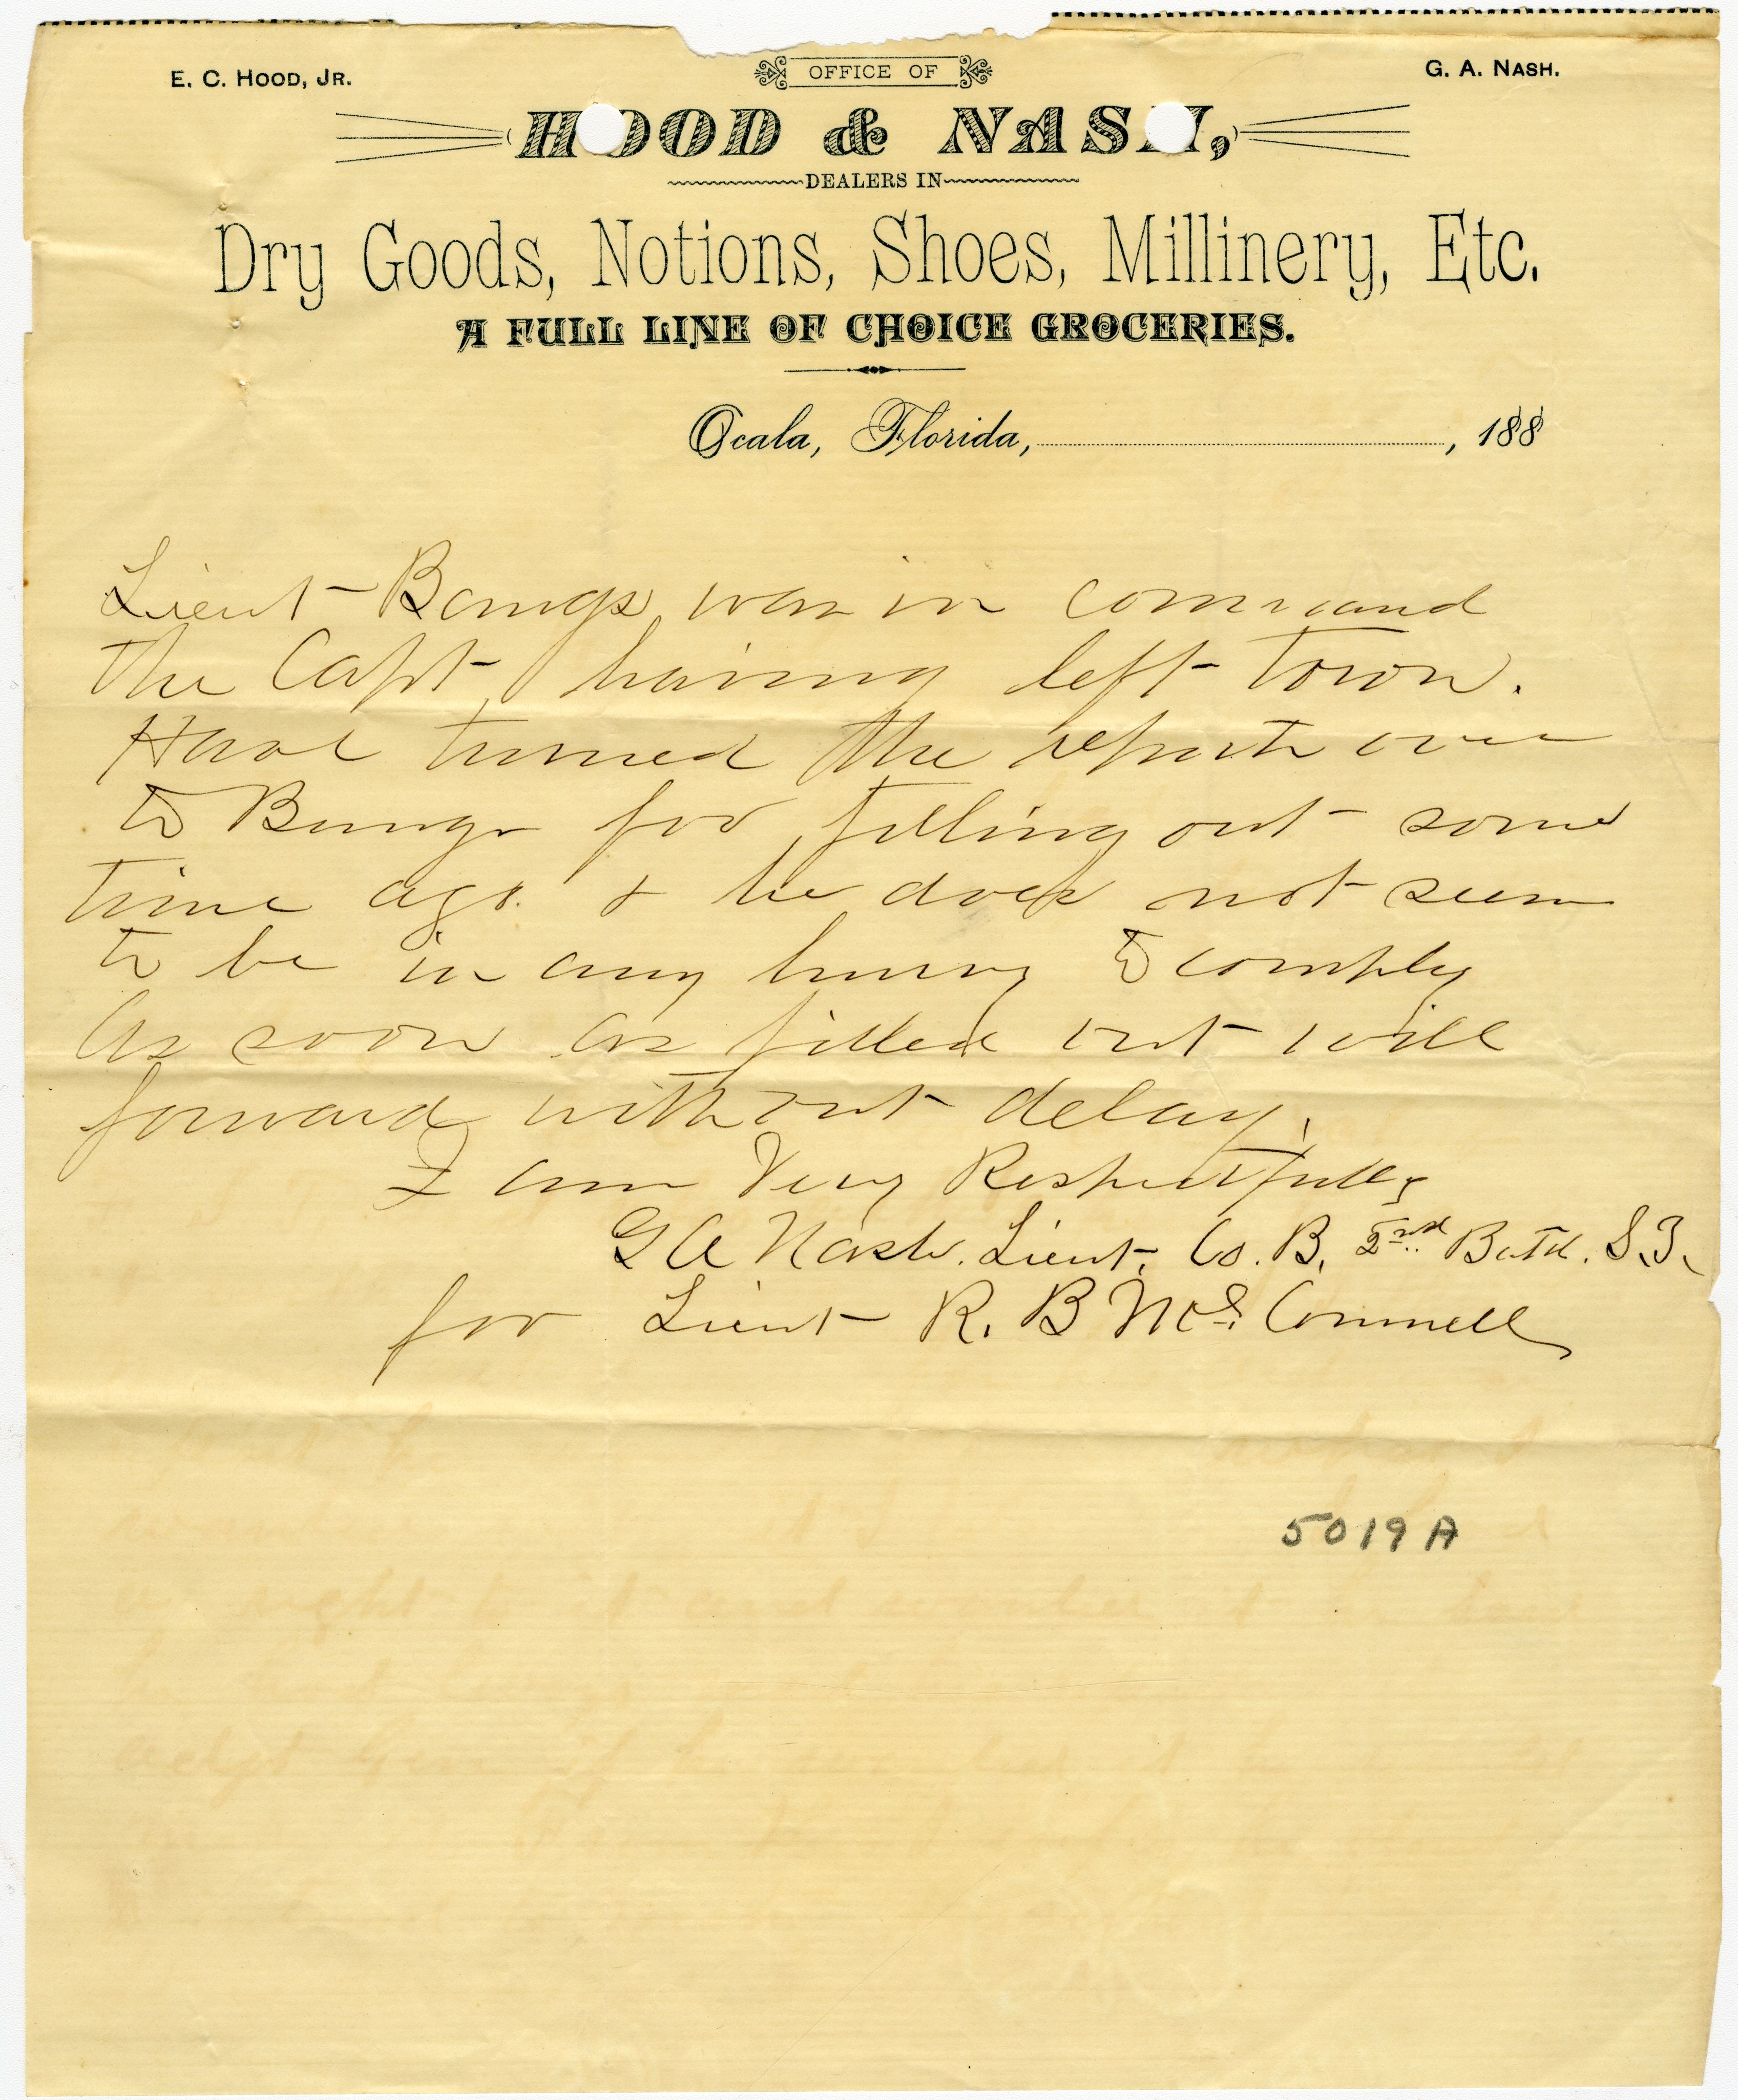 E. C. HOOD, JR.
OFFICE OF
G. A. NASH.
HOOD & NASH,
DEALERS IN
Dry Goods, Notions, Shoes, Millinery, Etc.
A FULL LINE OF CHOICE GROCERIES.
Ocala, Florida, , 188
Lieut Bangs was in command
the Capt having left town.
Have turned the reports over
to Bangs for filling out some
time ago. & he does not seem
to be in any hurry to comply
As soon as filled out will
forward without delay.
I am Very Respectfully
G A Nash. Lieut. Co. B. 2nd Batl. S.T.
for Lieut R. B Mc Connell
5019 A